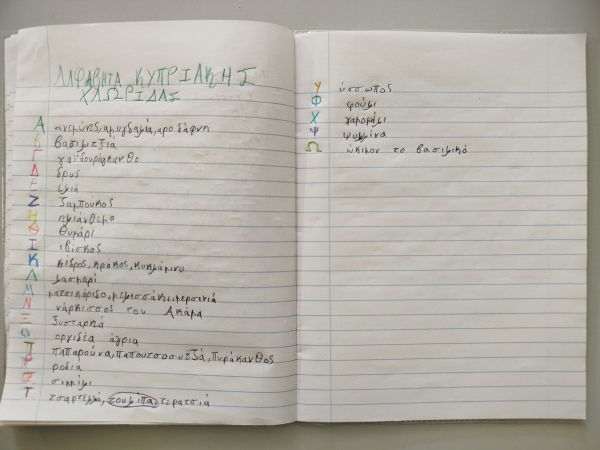 ΑΛΦΑΒΗΤΑ ΚΥΠΡΙΑΚΗΣ
ΧΛΩΡΙΔΑΣ
Α ανεμώνες, αμυγδαλιά, αροδάφνη
Β βασιλιτζιά
Γ γαϊδουράγκαθο
Δ δρυς
Ε ελιά
Ζ ζαμπούκος
Η ηλιάνθεμο
Θ θυμάρι
Ι ιβίσκος
Κ κέδρος, κρόκος, κυκλάμινο
Λ λασμαρί
Μ ματσικόριδο, μερσινιά
Ν νάρκισσος του Ακάμα
Ξ ξυσταρκά
Ο ορχιδέα άγρια
Π παπαρούνα, παπουτσοσυτζιά, πυράκανθος
Ρ ροδιά
Σ
Τ τερατσιά
Υ ύσσωπος
Φ φούλι
Χ χαμομήλι
Ψ
Ω ώκιμον το βασιλικό